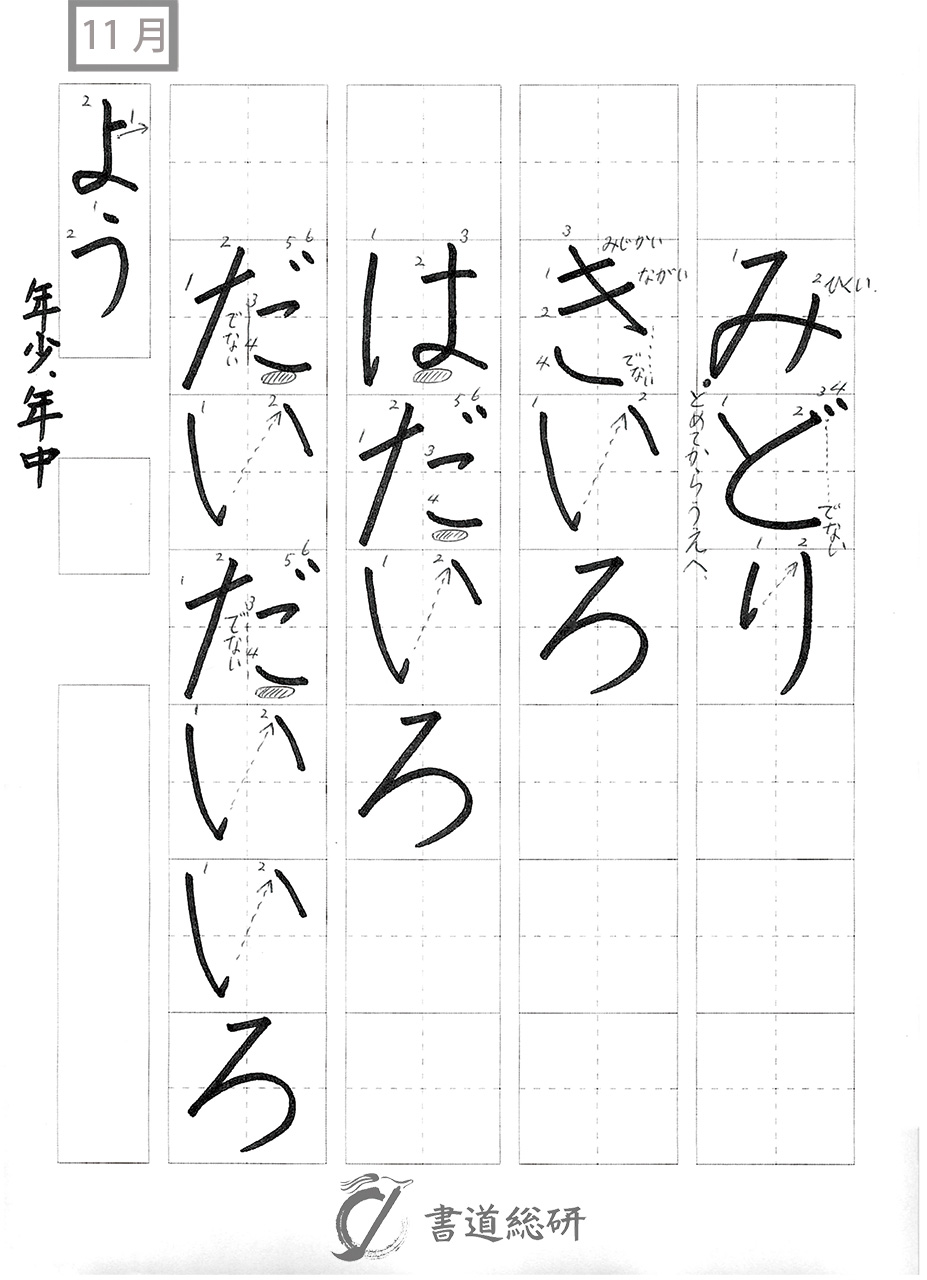 11月
みどり
ひくい.
でない
とめてからうえへ.
きいろ
みじかい
ながい
でない
はだいろ
だいだいいろ
でない
でない
よう
年少、年中
書道総研